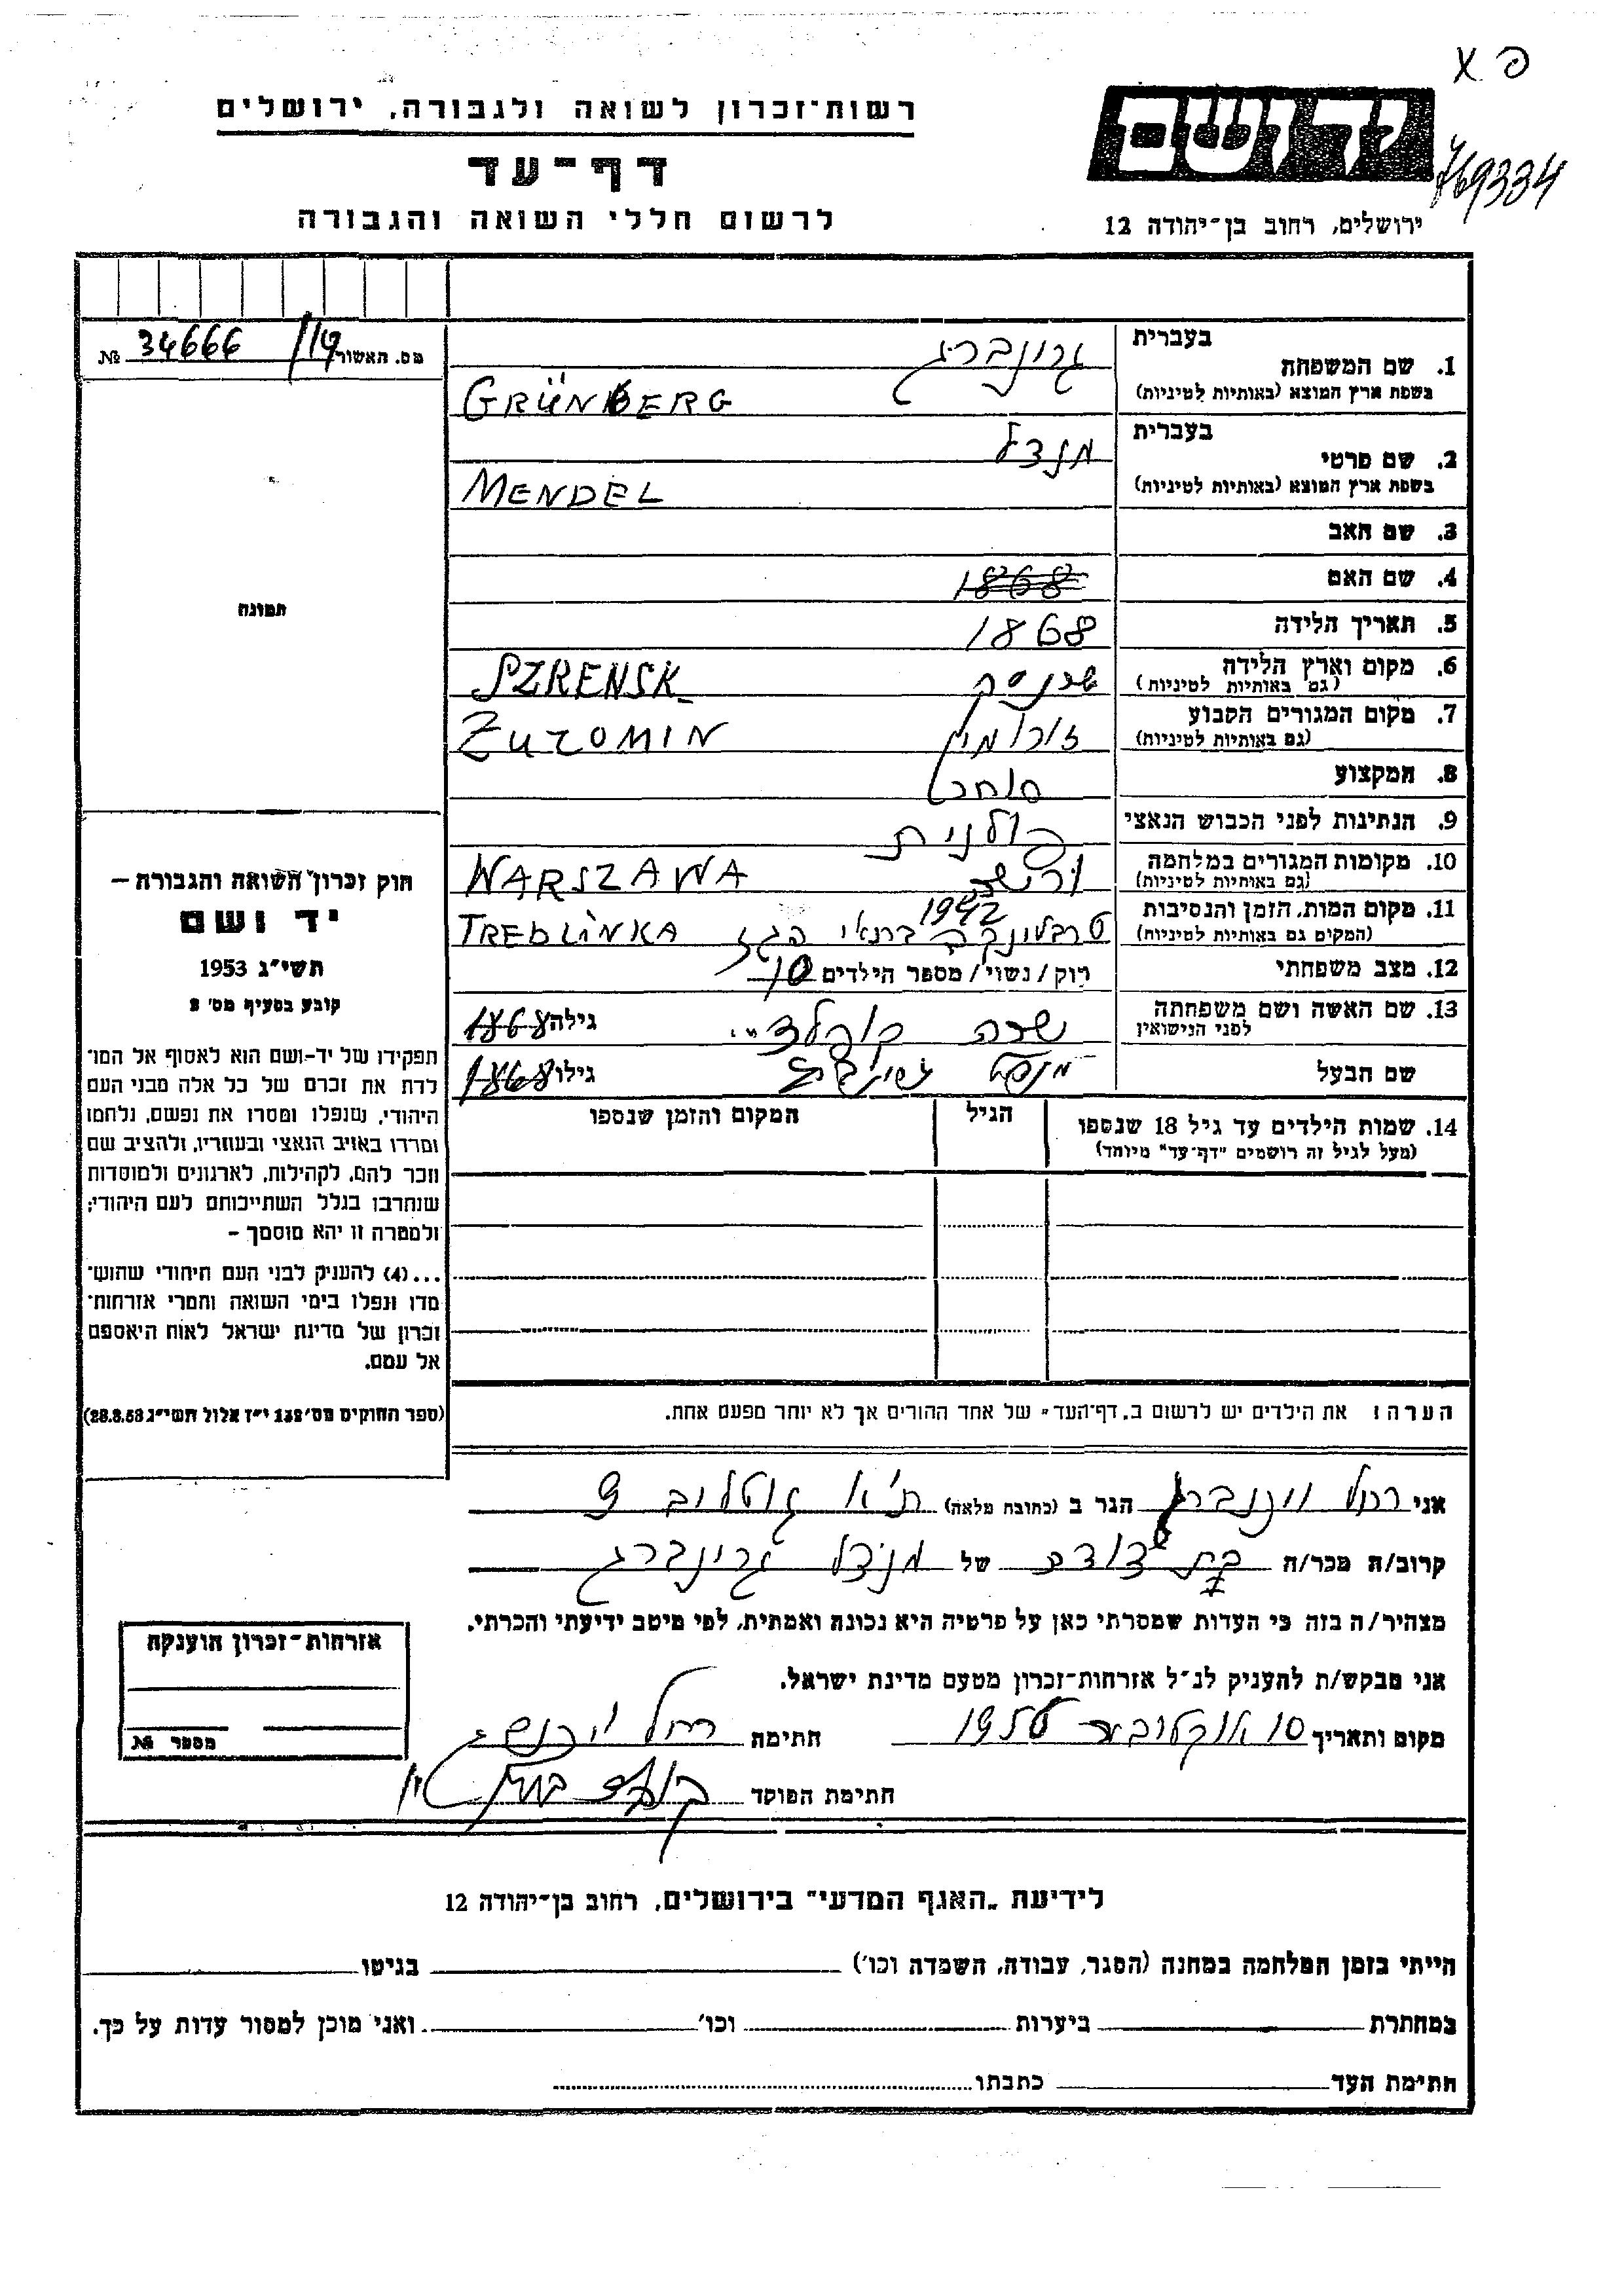 פ X
769334
רשות־זכרון לשואה ולגבורה, ירושלים
דף־עד
לרשום חללי השואה והגבורה
יד ושם
ירושלים, רחוב בן־יהודה 12
מס. תאשור № 34666
1. שם המשפחה
בעברית גרינברג
בשפת ארץ המוצא (באותיות לטיניות) GRÜNBERG
2. שם פרטי
בעברית מנדל
בשפת ארץ המוצא (באותיות לטיניות) MENDEL
3. שם האב
4. שם האם 1868
5. תאריך הלידה 1868
6. מקום וארץ הלידה שרנסק SZRENSK
(גם באותיות לטיניות)
7. מקום המגורים הקבוע זורומין ZUROMIN
(גם באותיות לטיניות)
8. המקצוע סוחר
9. הנתינות לפני הכבוש הנאצי פולנית
10. מקומות המגורים במלחמה ורשה WARSZAWA
(גם באותיות לטיניות)
11. מקום המות, הזמן והנסיבות 1942 טרבלינקה בתאי הגז TREBLINKA
(המקום גם באותיות לטיניות)
12. מצב משפחתי רוק/נשוי/ מספר הילדים 10
13. שם האשה ושם משפחתה שרה גילה 1868
לפני הנישואין
שם הבעל גילו 1868
14. שמות הילדים עד גיל 18 שנספו הגיל המקום והזמן שנספו
(מעל לגיל זה רושמים "דף־עד" מיוחד)
הערה: את הילדים יש לרשום ב„דף־העד" של אחד ההורים אך לא יותר מפעם אחת.
תמונה
חוק זכרון השואה והגבורה –
יד ושם
תשי״ג 1953
קובע בסעיף מס׳ 2
תפקידו של יד–ושם הוא לאסוף אל המו־
לדת את זכרם של כל אלה מבני העם
היהודי, שנפלו ומסרו את נפשם, נלחמו
ומרדו באויב הנאצי ובעוזריו, ולהציב שם
וזכר להם, לקהילות, לארגונים ולמוסדות
שנחרבו בגלל השתייכותם לעם היהודי;
ולמטרה זו יהא מוסמך –
...(4) להעניק לבני העם היהודי שהוש־
מדו ונפלו בימי השואה והמרי אזרחות־
זכרון של מדינת ישראל לאות היאספם
אל עמם.
(ספר החוקים מס׳ 132 י״ז אלול תשי״ג 28.8.53)
אני רחל וינגברג הגר ב (כתובת מלאה) ת״א גוטליב 9
קרוב/ה מכר/ה בת דודה של מנדל גרינברג
מצהיר/ה בזה כי העדות שמסרתי כאן על פרטיה היא נכונה ואמתית, לפי מיטב ידיעתי והכרתי.
אני מבקש/ת להעניק לנ״ל אזרחות־זכרון מטעם מדינת ישראל.
מקום ותאריך 10 אוקטובר 1956 חתימה רחל
חתימת הפוקד
אזרחות־זכרון הוענקה
מספר №
לידיעת „האגף המדעי" בירושלים, רחוב בן־יהודה 12
הייתי בזמן המלחמה במחנה (הסגר, עבודה, השמדה וכו׳) בגיטו
במחתרת ביערות וכו׳ ואני מוכן למסור עדות על כך.
חתימת העד כתבתו